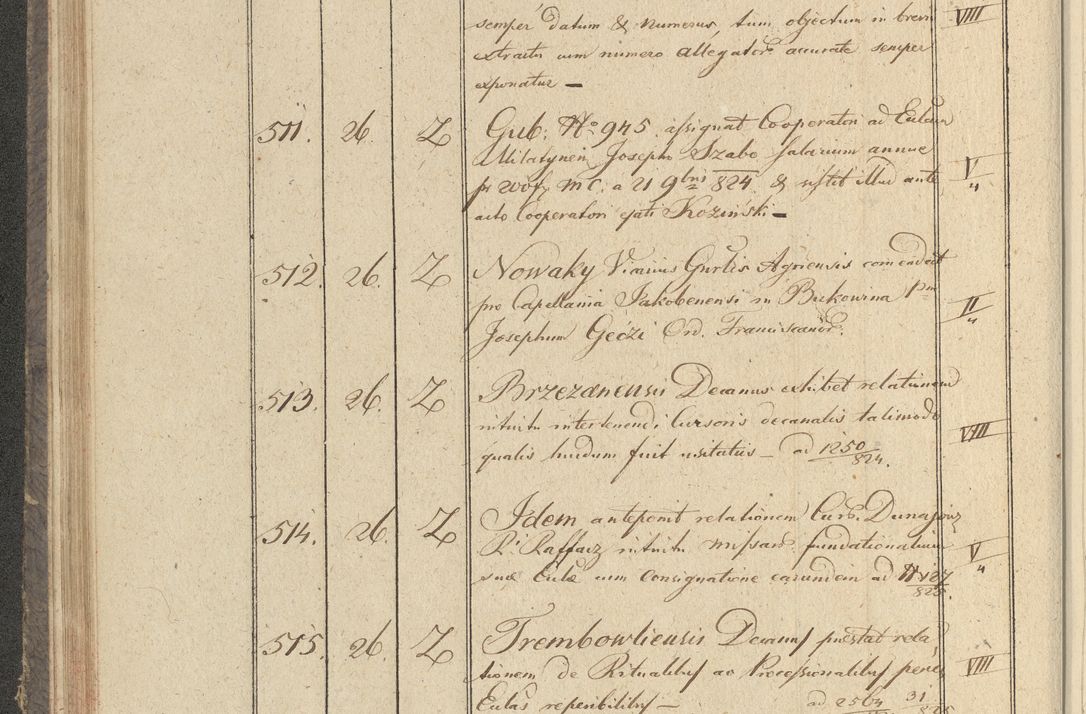 semper datum & numerus, tum objectum in brevi VIII
extractu cum numero allegator accurate semper
exponatur —
511. 26. Z Gub. No 945. assignat Cooperatori ad Eccla
Milatynen Josepho Szabo salarium annue V
pr 200 f. M C. a 21 9bris 824. & sistit illud ante
acto Cooperatori Koziński —
512. 26. Z Nowaky Vicarius Gnrlis Agriensis comendat
pro Capellania Jakobenensi in Bukowina II
Josephum Geczi Ord. Franciscanor.
513. 26. Z Brzezanensis Decanus exhibet relationem
intuitu intertenendi Cursoris decanalis talimodo VIII
qualis hucdum fuit usitatus — ad 1250/824.
514. 26. Z Idem anteponit relationem Cur. Dunajow
Raffacz intuitu missar. fundationalium V
suae Eclae cum Consignatione earundem ad N 127/825.
515. 26. Z Trembowliensis Decanus praestat rela
tionem de Ritualibus ac Processionalibus penes VIII
Eclas reperibilibus — ad 2564 31